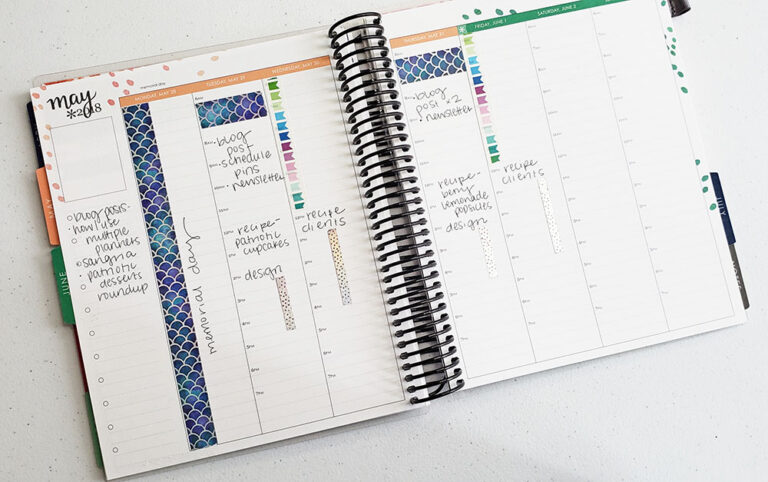 may
*2018
memorial day
MONDAY, MAY 28
TUESDAY, MAY 29
WEDNESDAY, MAY 30
blog posts-
how I use
multiple
planners
sangria
patriotic
desserts
roundup
memorial day
blog
post
• schedule
pins
• newsletter
recipe-
patriotic
cupcakes
design
recipe
clients
THURSDAY, MAY 31
FRIDAY, JUNE 1
SATURDAY, JUNE 2
• blog
post x2
• newsletter
recipe-
berry
lemonade
popsicles
design
recipe
clients
MAY
JUNE
JULY